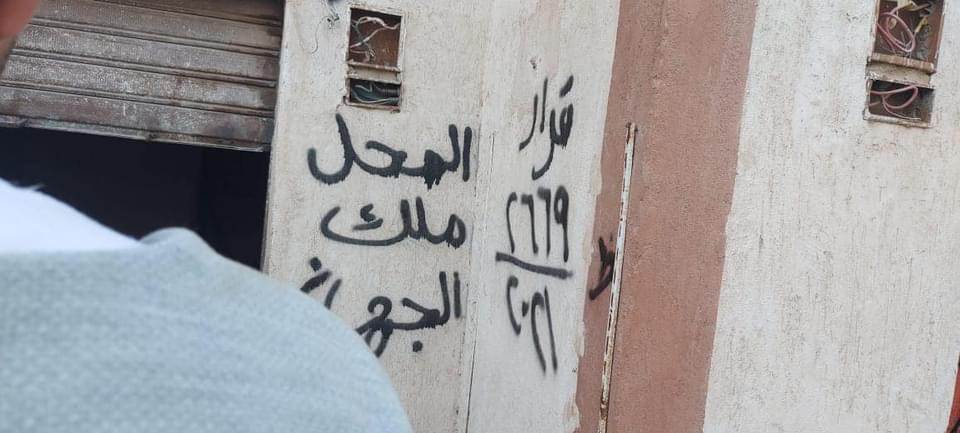 قرار
٢٦٦٩
٢٠٢١
المحل
ملك
الجهاز